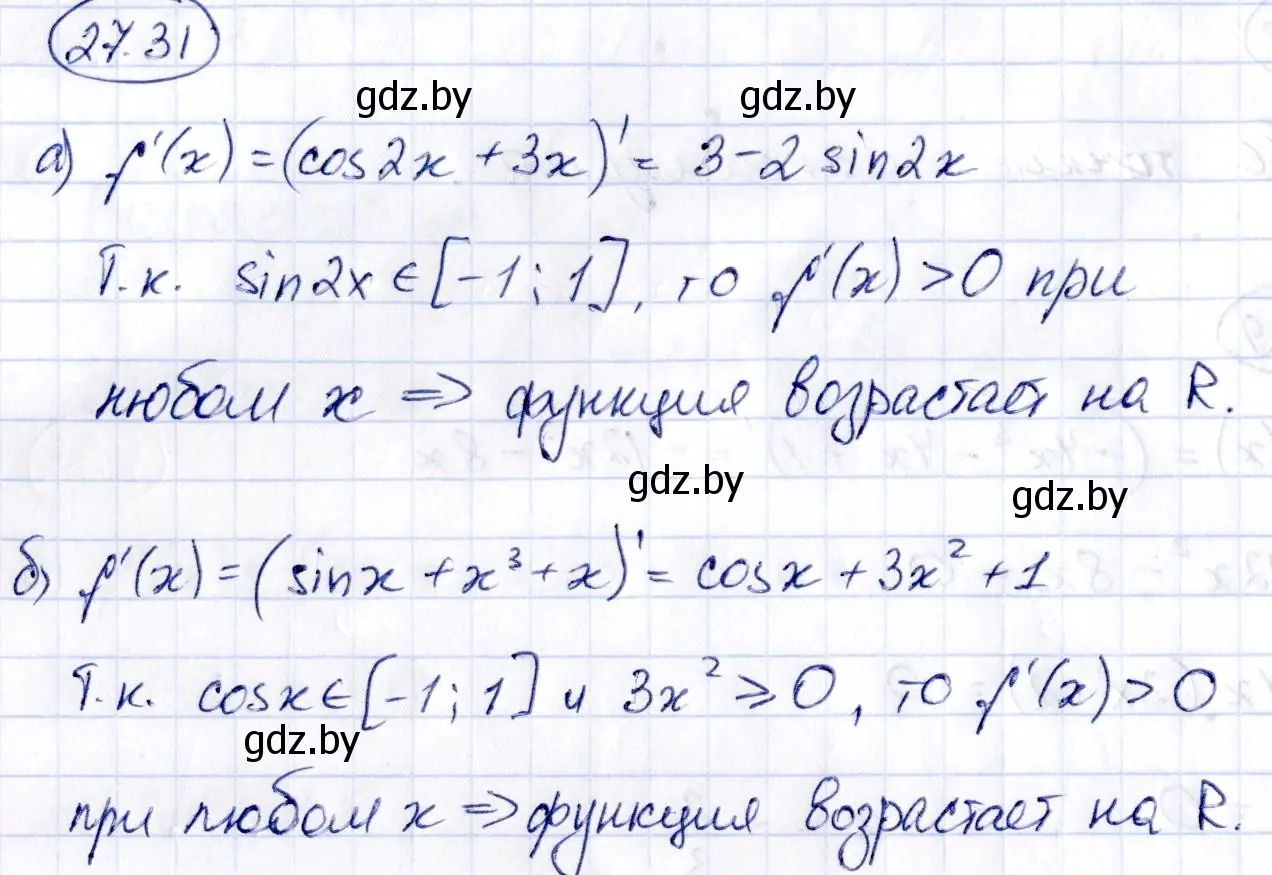 27.31
gdz.by gdz.by
а) f'(x) = (cos2x + 3x)' = 3 - 2 sin2x
Т.к. sin2x ∈ [-1; 1], то f'(x) > 0 при
любом x => функция возрастает на R.
gdz.by gdz.by
б) f'(x) = (sinx + x³ + x)' = cosx + 3x² + 1
Т.к. cosx ∈ [-1; 1] и 3x² ⩾ 0, то f'(x) > 0
gdz.by
при любом x => функция возрастает на R.